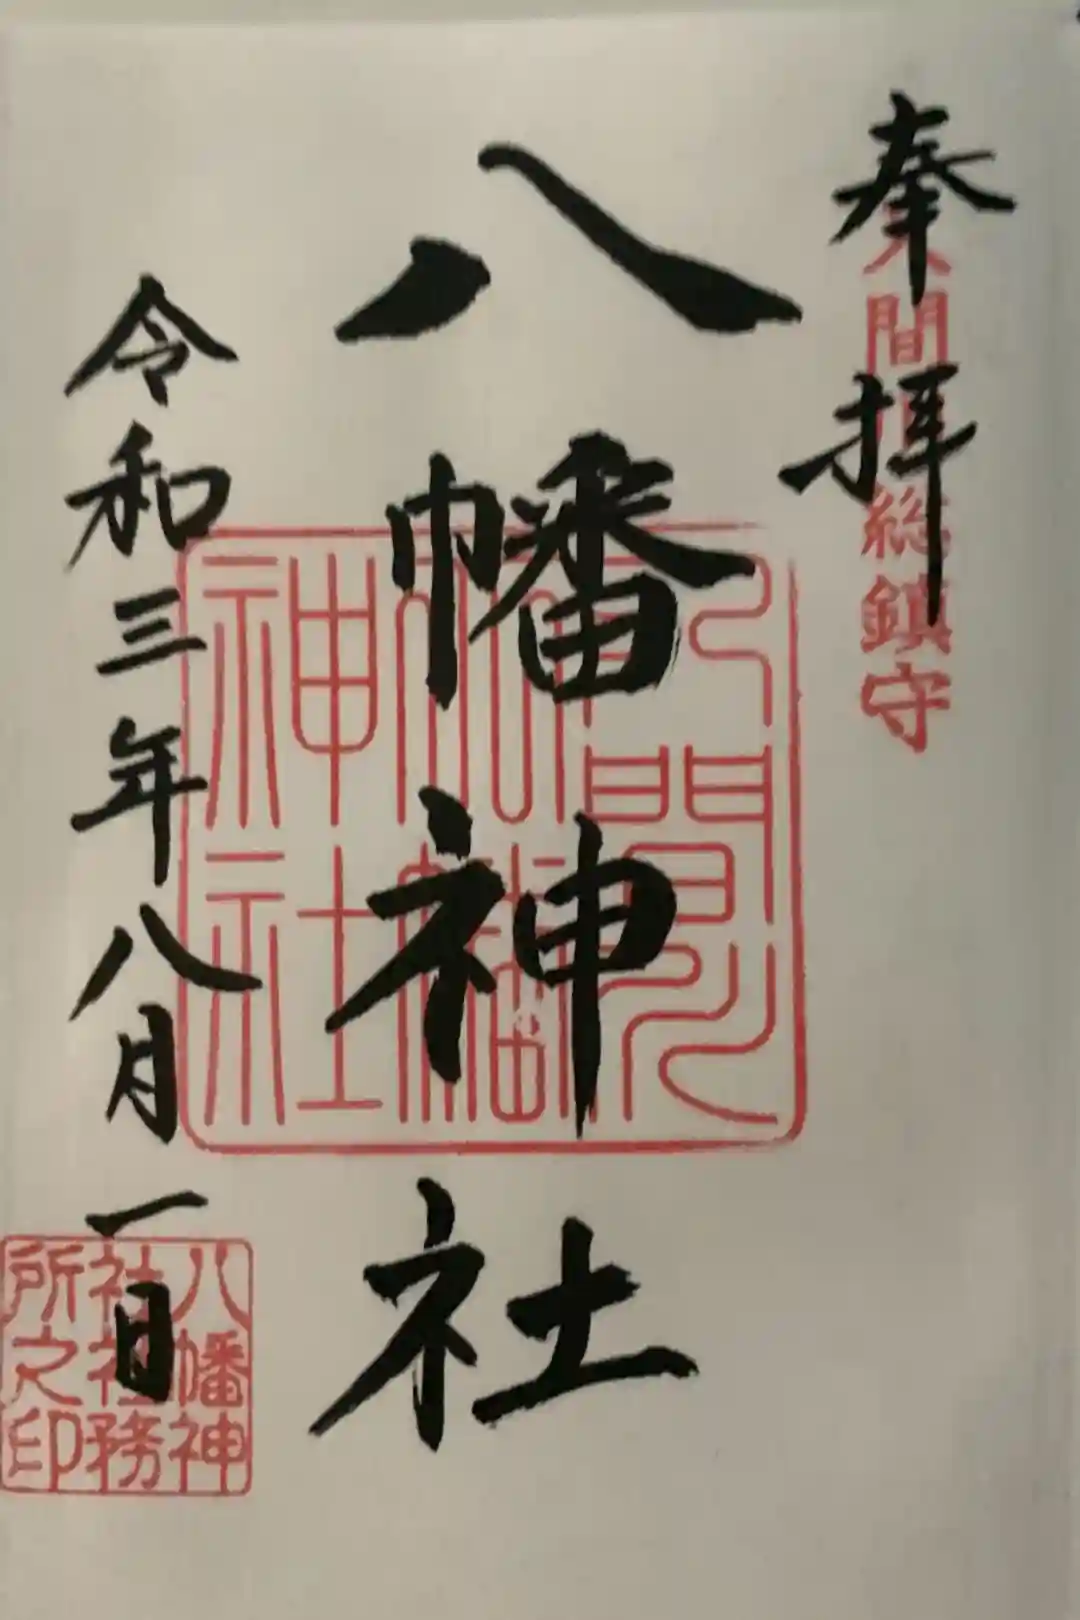 奉拝
間 総鎮守
八幡神社
神社
令和三年八月一日
八幡神
社社務
所之印